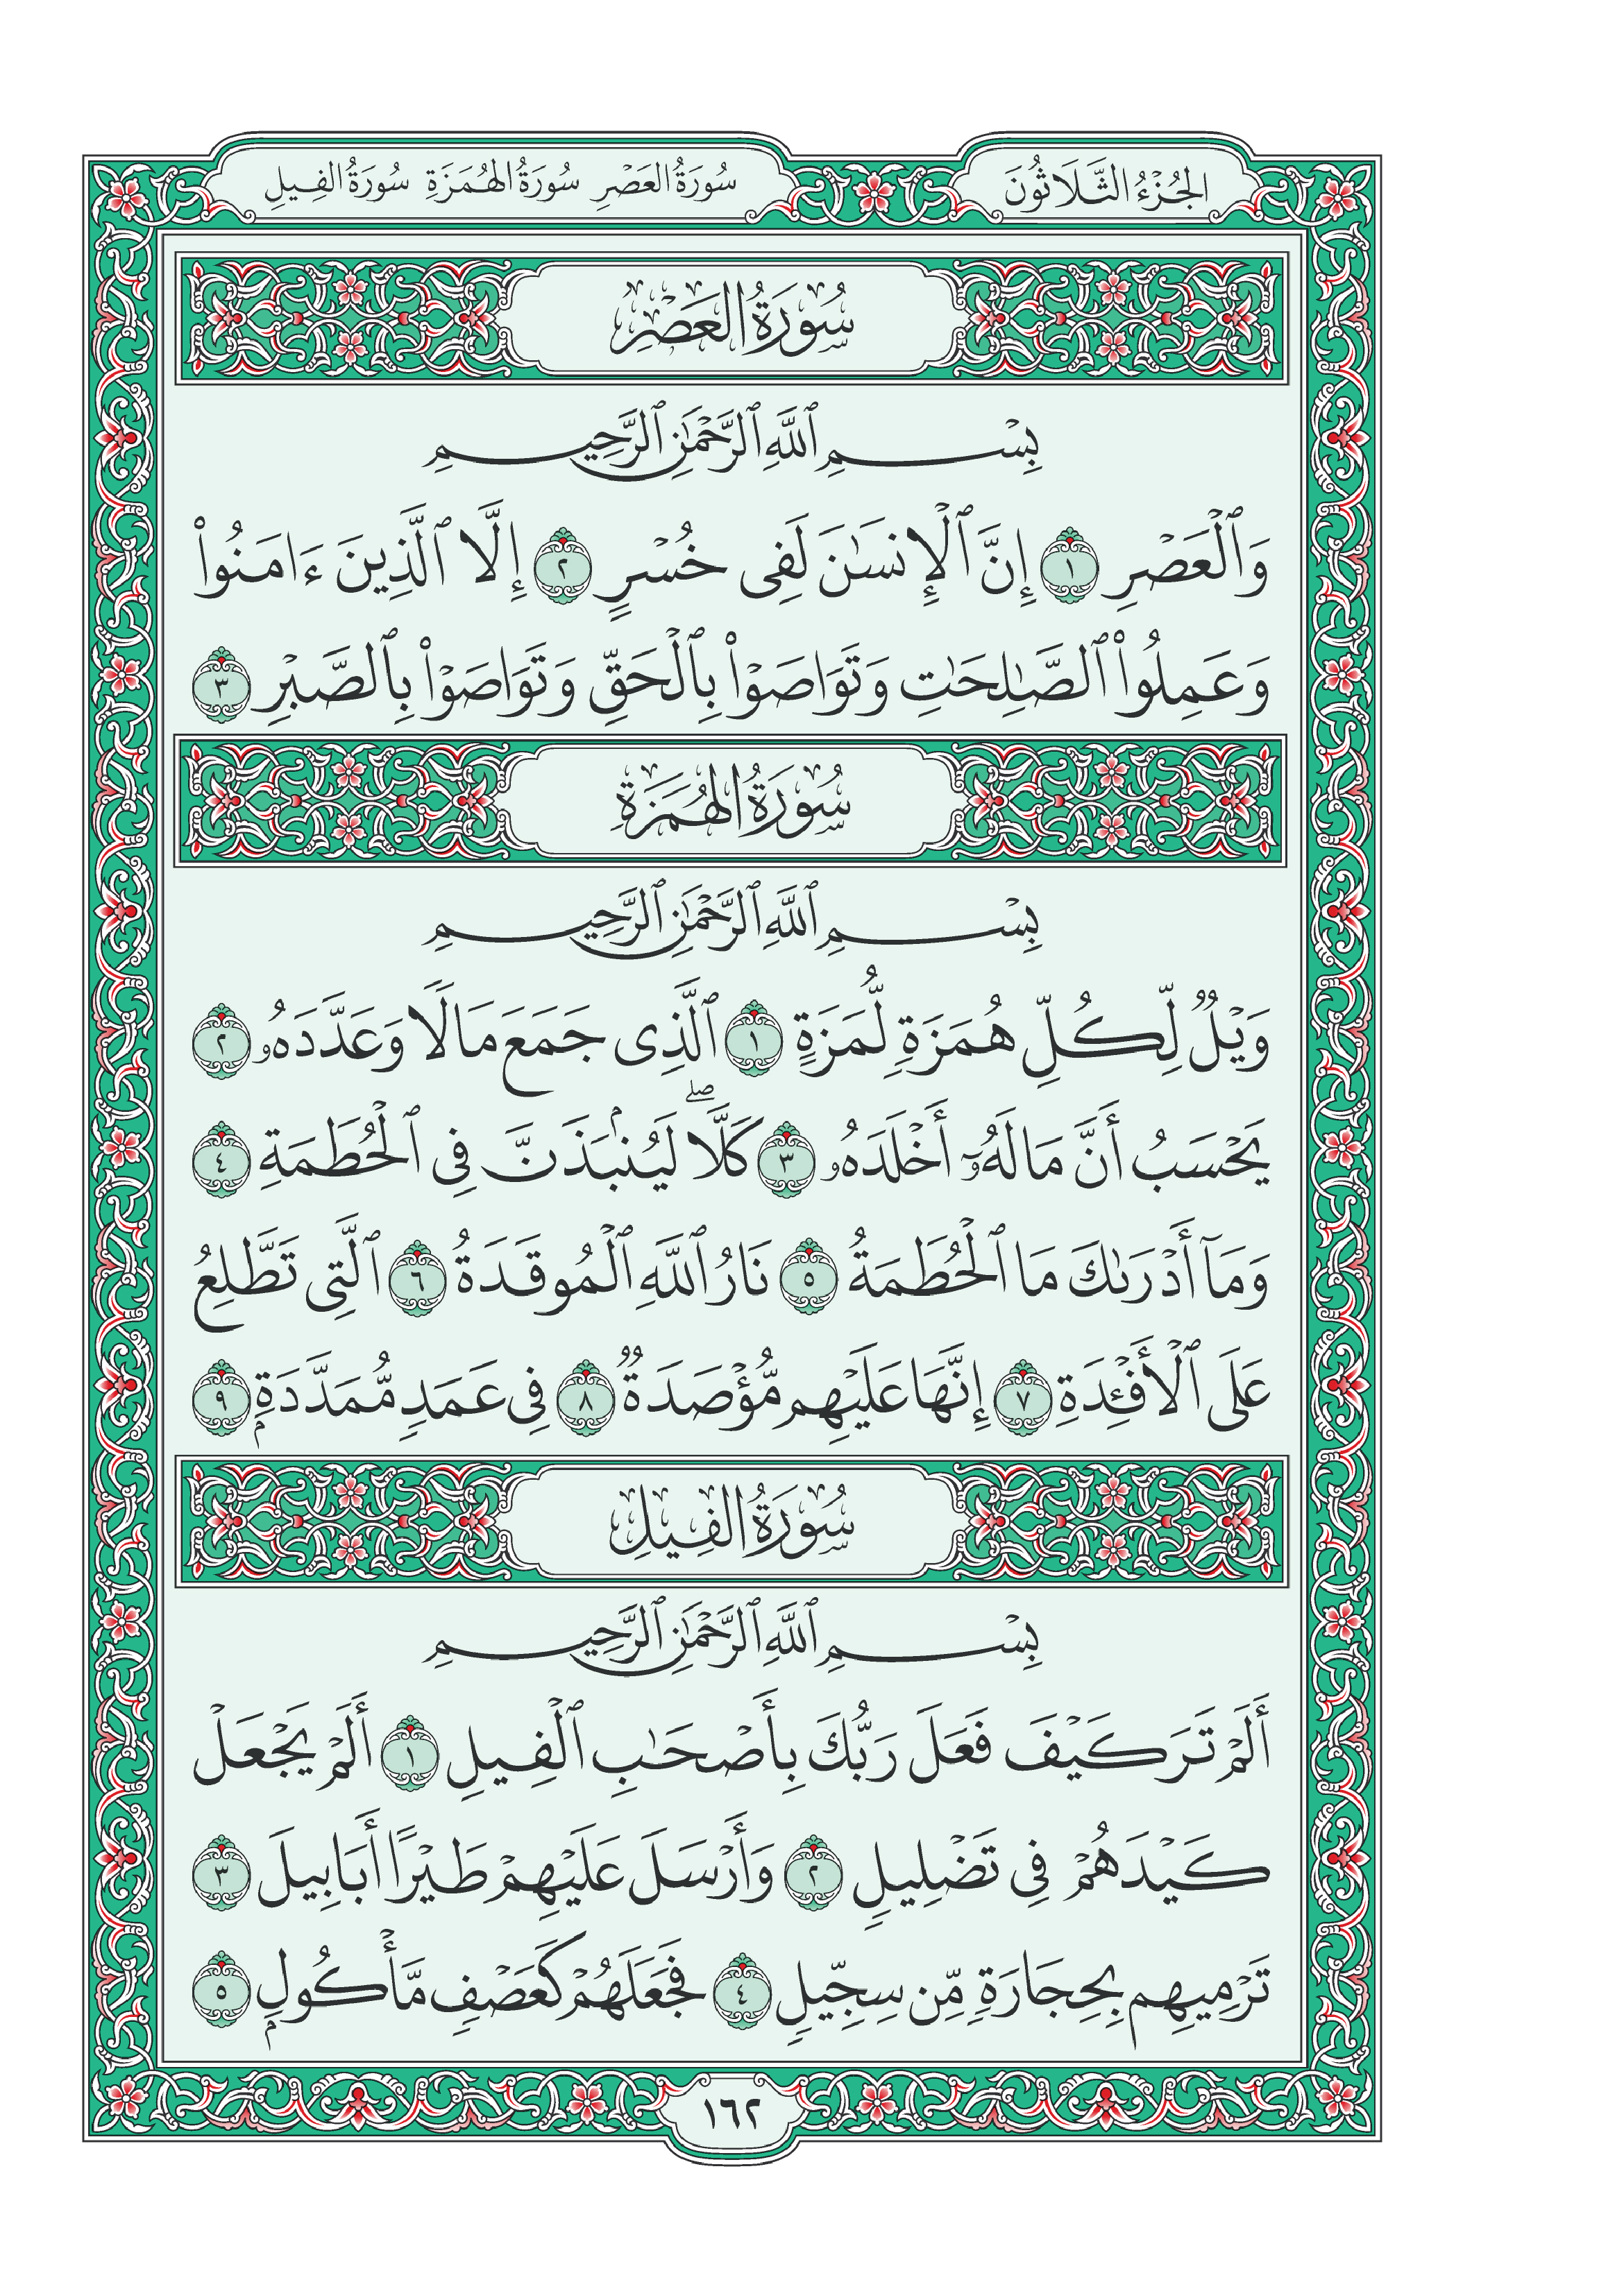 الجُزْءُ الثَّلَاثُونَ
سُورَةُ العَصْرِ سُورَةُ الهُمَزَةِ سُورَةُ الفِيلِ
سُورَةُ العَصْرِ
بِسْمِ ٱللَّهِ ٱلرَّحْمَٰنِ ٱلرَّحِيمِ
وَٱلْعَصْرِ ١ إِنَّ ٱلْإِنسَٰنَ لَفِى خُسْرٍ ٢ إِلَّا ٱلَّذِينَ ءَامَنُوا۟
وَعَمِلُوا۟ ٱلصَّٰلِحَٰتِ وَتَوَاصَوْا۟ بِٱلْحَقِّ وَتَوَاصَوْا۟ بِٱلصَّبْرِ ٣
سُورَةُ الهُمَزَةِ
بِسْمِ ٱللَّهِ ٱلرَّحْمَٰنِ ٱلرَّحِيمِ
وَيْلٌ لِّكُلِّ هُمَزَةٍ لُّمَزَةٍ ١ ٱلَّذِى جَمَعَ مَالًا وَعَدَّدَهُۥ ٢
يَحْسَبُ أَنَّ مَالَهُۥٓ أَخْلَدَهُۥ ٣ كَلَّا ۖ لَيُنۢبَذَنَّ فِى ٱلْحُطَمَةِ ٤
وَمَآ أَدْرَىٰكَ مَا ٱلْحُطَمَةُ ٥ نَارُ ٱللَّهِ ٱلْمُوقَدَةُ ٦ ٱلَّتِى تَطَّلِعُ
عَلَى ٱلْأَفْـِٔدَةِ ٧ إِنَّهَا عَلَيْهِم مُّؤْصَدَةٌ ٨ فِى عَمَدٍ مُّمَدَّدَةٍۭ ٩
سُورَةُ الفِيلِ
بِسْمِ ٱللَّهِ ٱلرَّحْمَٰنِ ٱلرَّحِيمِ
أَلَمْ تَرَ كَيْفَ فَعَلَ رَبُّكَ بِأَصْحَٰبِ ٱلْفِيلِ ١ أَلَمْ يَجْعَلْ
كَيْدَهُمْ فِى تَضْلِيلٍ ٢ وَأَرْسَلَ عَلَيْهِمْ طَيْرًا أَبَابِيلَ ٣
تَرْمِيهِم بِحِجَارَةٍ مِّن سِجِّيلٍ ٤ فَجَعَلَهُمْ كَعَصْفٍ مَّأْكُولٍۭ ٥
١٦٢